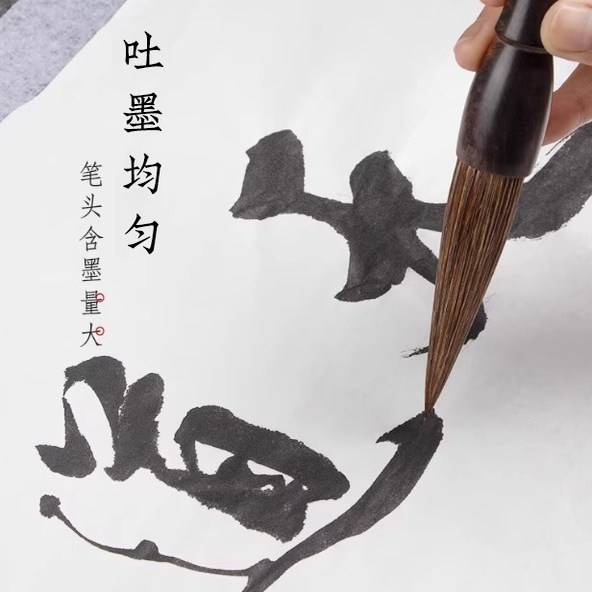 吐墨均匀
笔头含墨量大